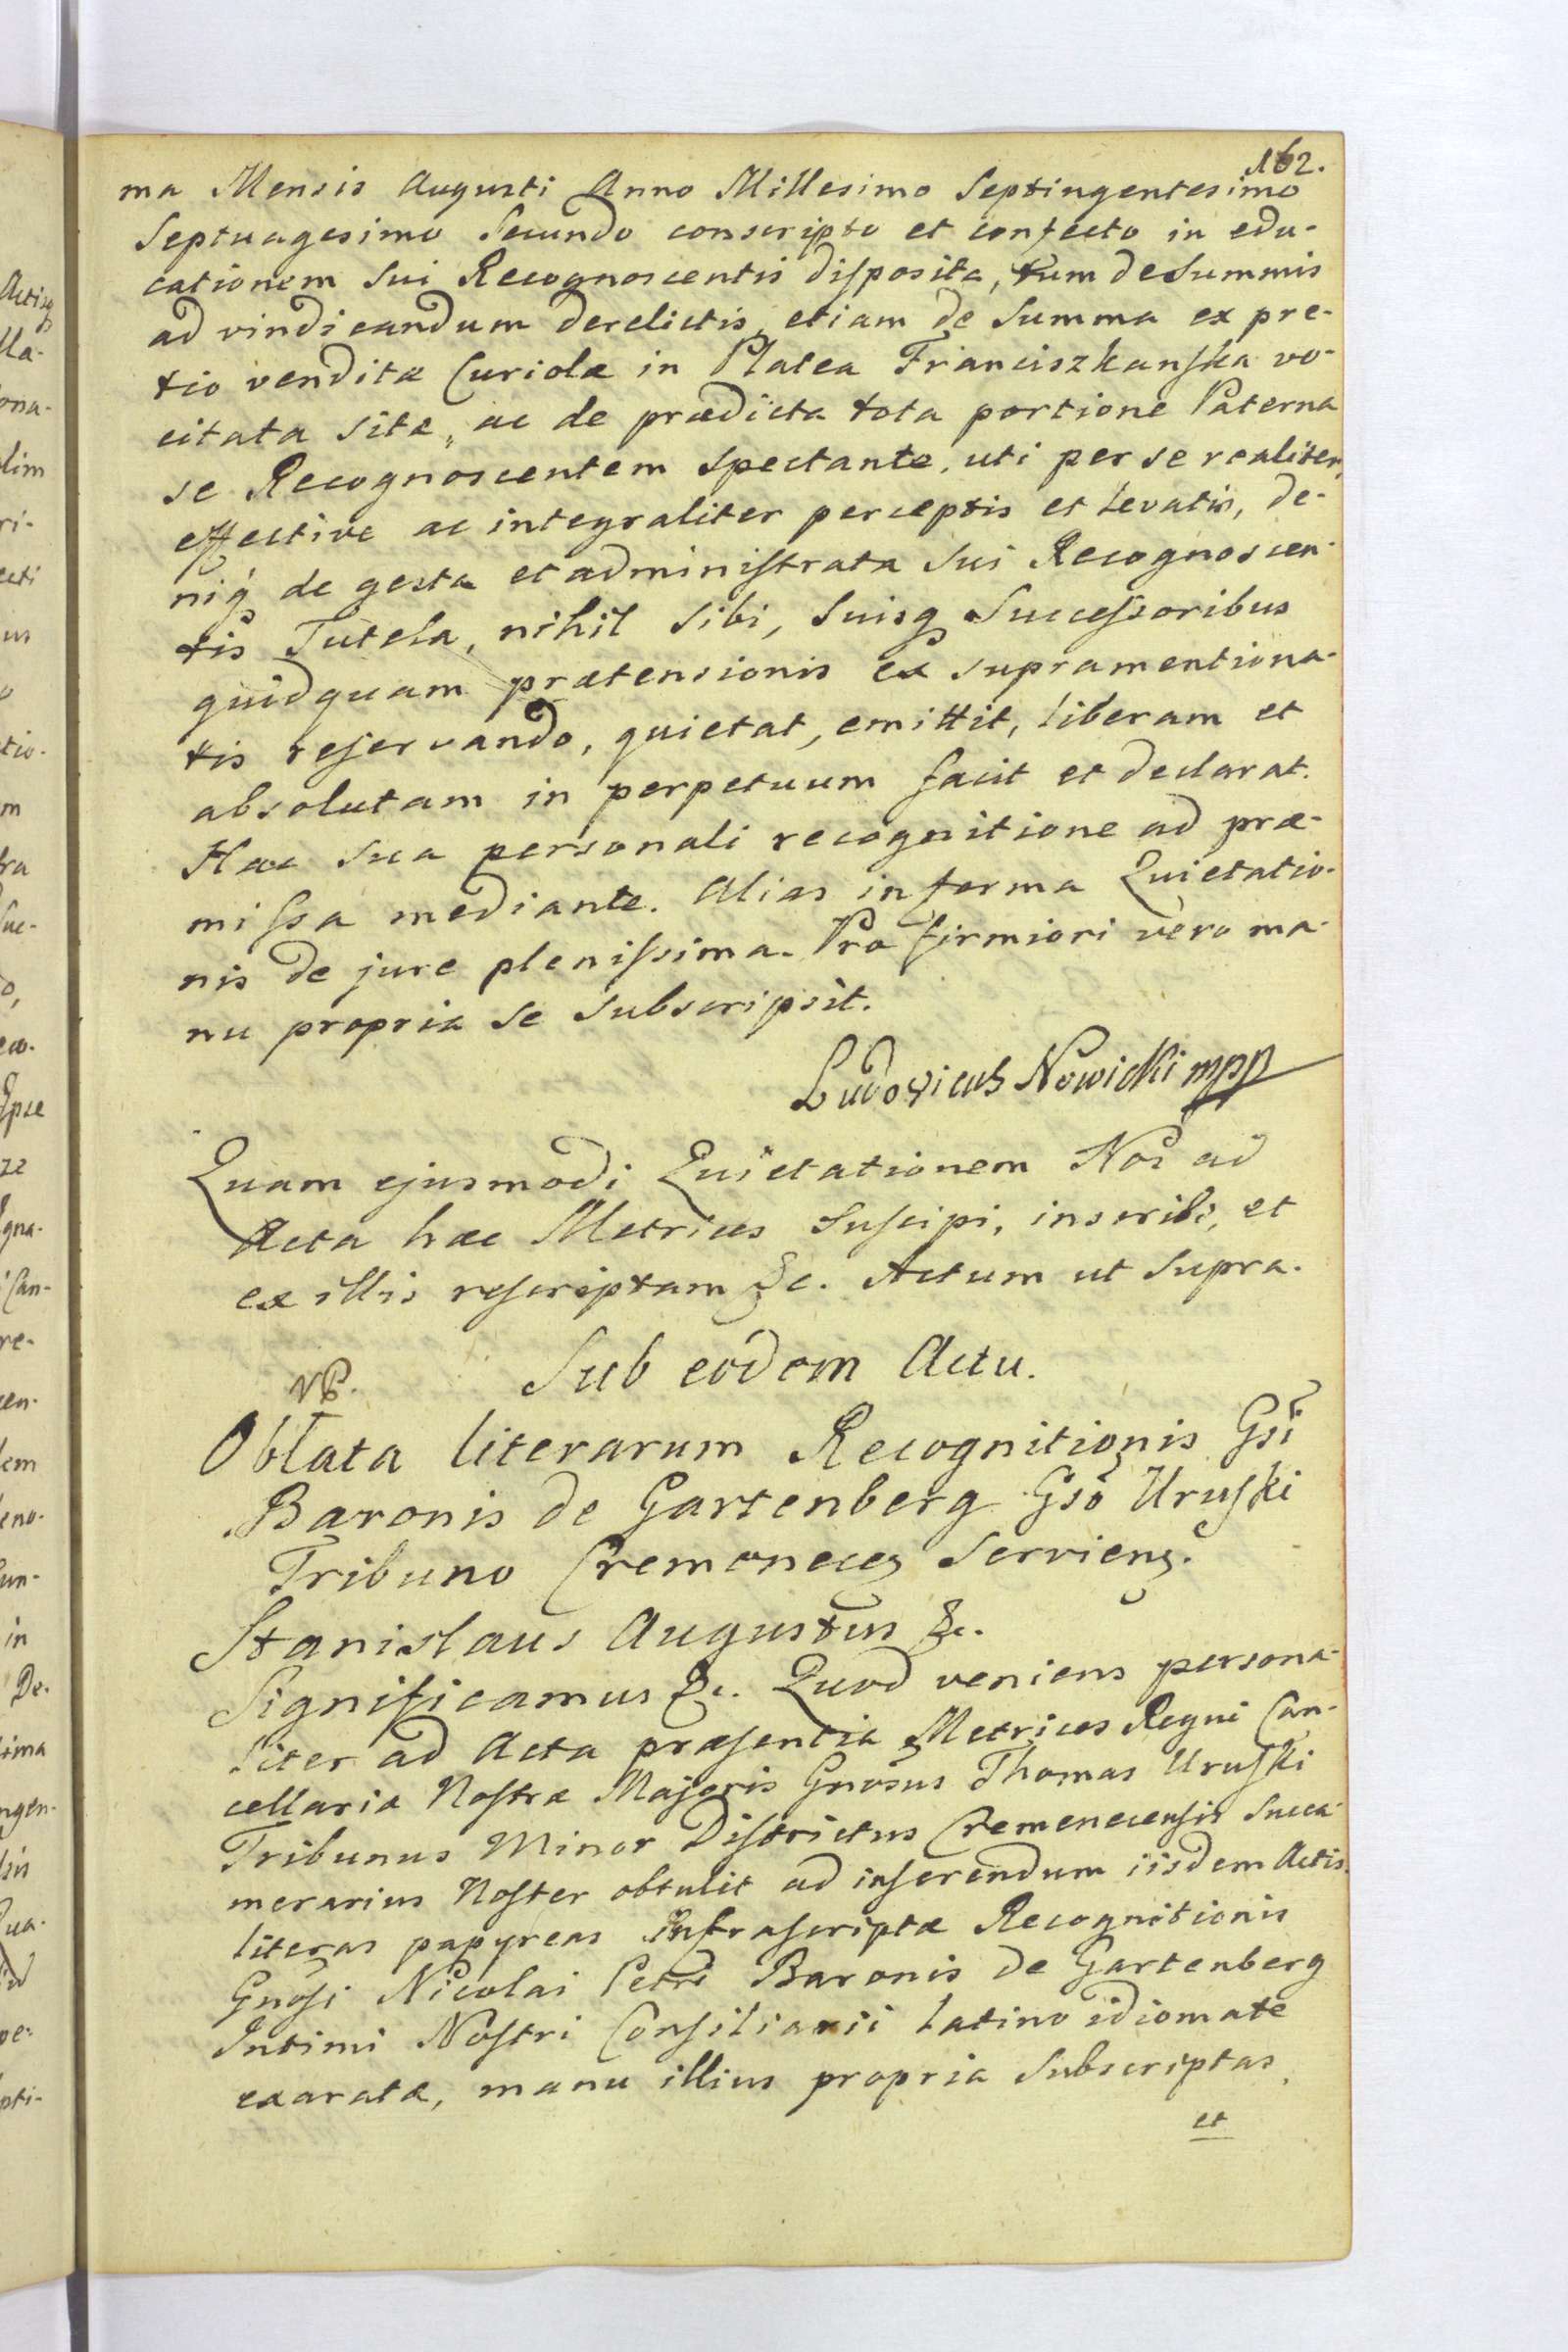 162.
ma Mensis Augusti Anno Millesimo Septingentesimo
Septuagesimo Secundo conscripto et confecto in edu-
cationem sui Recognoscentis disposita, tum de Summis
ad vindicandum derelictis, etiam de Summa ex pre-
tio venditæ Curiolæ in Platea Franciszkanska vo-
citata sitæ, ac de prædicta tota portione Paterna
se Recognoscentem spectante, uti per se realiter,
effective ac integraliter perceptis et levatis, de-
niq de gesta et administrata sui Recognoscen-
tis Tutela, nihil sibi, suisq Successoribus
quidquam prætensionis ex supramentiona-
tis reservando, quietat, emittit, liberam et
absolutam in perpetuum facit et declarat.
Hac sua personali recognitione ad præ-
missa mediante. Alias in forma Quietatio-
nis de jure plenissima. Pro firmiori vero ma-
nu propria se subscripsit.
Ludovicus Nowicki mpp
Quam ejusmodi Quietationem Nos ad
Acta hæc Metrices suscipi, inscribi, et
ex illis rescriptam &c. Actum ut supra.
Sub eodem Actu.
Oblata literarum Recognitionis Gsi
Baronis de Gartenberg Gso Uruski
Tribuno Cremoneceg Serviens.
Stanislaus Augustus &c.
Significamus &c. Quod veniens persona-
liter ad Acta præsentia Metrices Regni Can-
cellariæ Nostræ Majoris Gnosus Thomas Uruski
Tribunus Minor Districtus Cremenecensis Succa-
merarius Noster obtulit ad inserendum iisdem Actis
literas papyreas infrascriptæ Recognitionis
Gnosi Nicolai Petri Baronis de Gartenberg
Intimi Nostri Consiliarii latino idiomate
exaratæ, manu illius propria subscriptas,
et